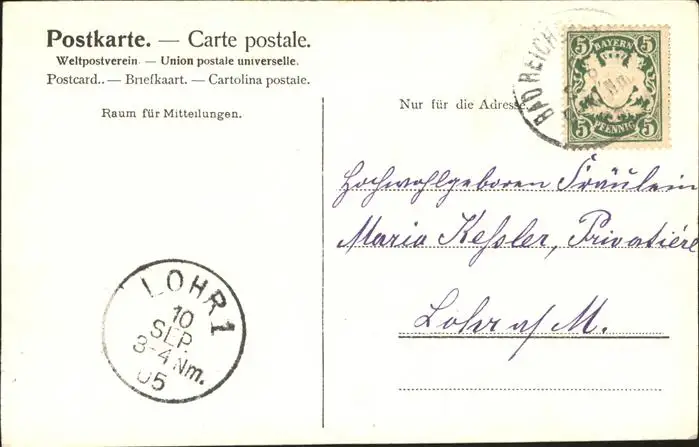 Postkarte. — Carte postale.
Weltpostverein — Union postale universelle.
Postcard.. — Briefkaart. — Cartolina postale.
Raum für Mitteilungen.
Nur für die Adresse.
BAD REICH
5 BAYERN 5
5 PFENNIG 5
Hochwohlgeboren Fräulein
Maria Keßler, Privatiére
Lohr a/ M.
LOHR 1
10
SEP.
3-4 Nm.
05